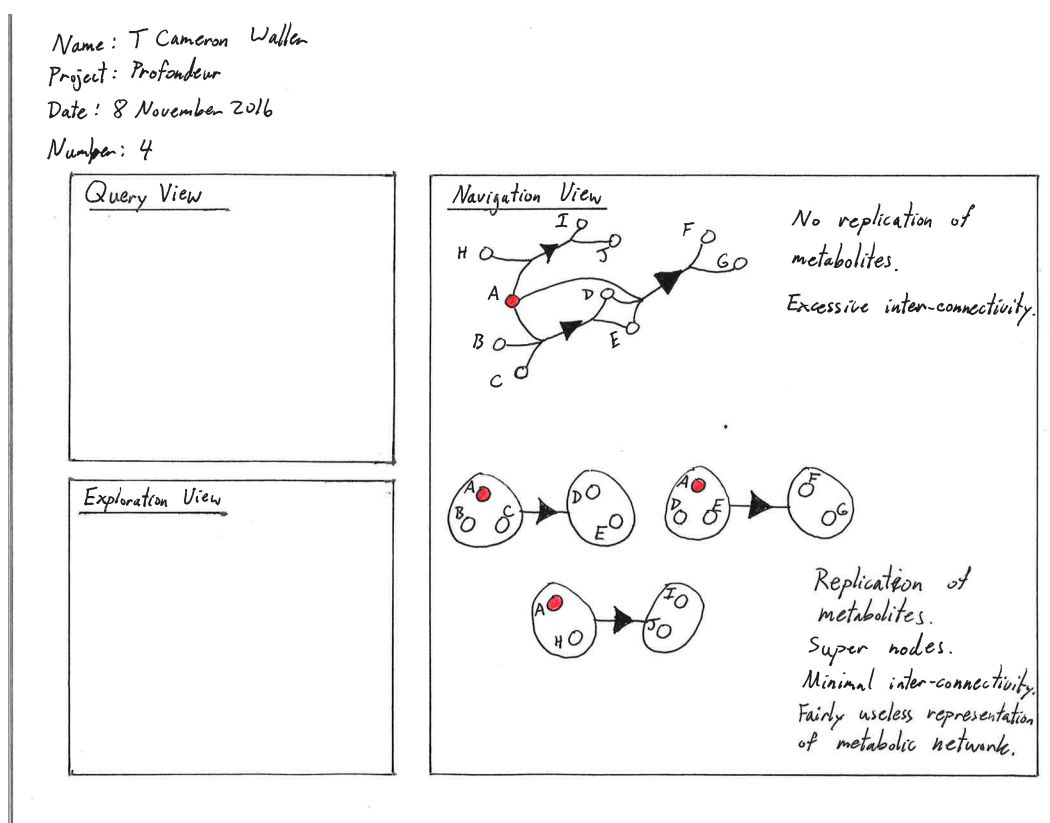 Name: T Cameron Waller
Project: Profondeur
Date: 8 November 2016
Number: 4
Query View
Exploration View
Navigation View
I
H
J
A
B
C
D
E
F
G
No replication of
metabolites.
Excessive inter-connectivity.
A
B
C
D
E
A
D
E
F
G
A
H
I
J
Replication of
metabolites.
Super nodes.
Minimal inter-connectivity.
Fairly useless representation
of metabolic network.